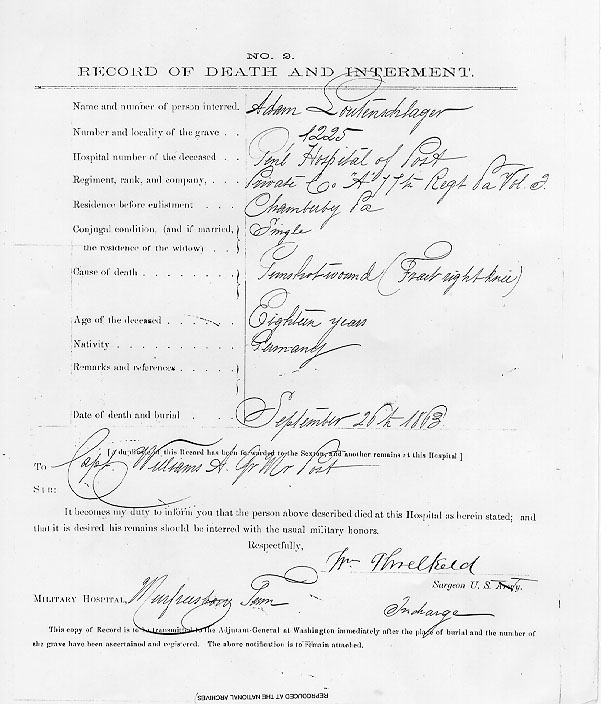 NO. 2.
RECORD OF DEATH AND INTERMENT.
Name and number of person interred. Adam Loutenschlager
Number and locality of the grave . . 1225
Hospital number of the deceased . . Genl Hospital of Post
Regiment, rank, and company, . . . Private Co "A" 77th Regt Pa Vol. I.
Residence before enlistment . . . Chamberbg Pa
Conjugal condition, (and if married, Single
the residence of the widow) . .
Cause of death . . . . . . . . Gunshot wound (Fract right knee)
Age of the deceased . . . . . . Eighteen years
Nativity . . . . . . . . . . Germany
Remarks and references . . . . .
Date of death and burial . . . . September 26th 1863
[A duplicate of this Record has been forwarded to the Sexton, and another remains at this Hospital]
To Capt Williams A. Qr Mr Post
SIR:
It becomes my duty to inform you that the person above described died at this Hospital as herein stated; and
that it is desired his remains should be interred with the usual military honors.
Respectfully,
Wm Threlkeld
Surgeon U. S. Army.
MILITARY HOSPITAL, Murfreesboro Tenn
In charge
This copy of Record is to be transmitted to the Adjutant-General at Washington immediately after the place of burial and the number of
the grave have been ascertained and registered. The above notification is to remain attached.
REPRODUCED AT THE NATIONAL ARCHIVES